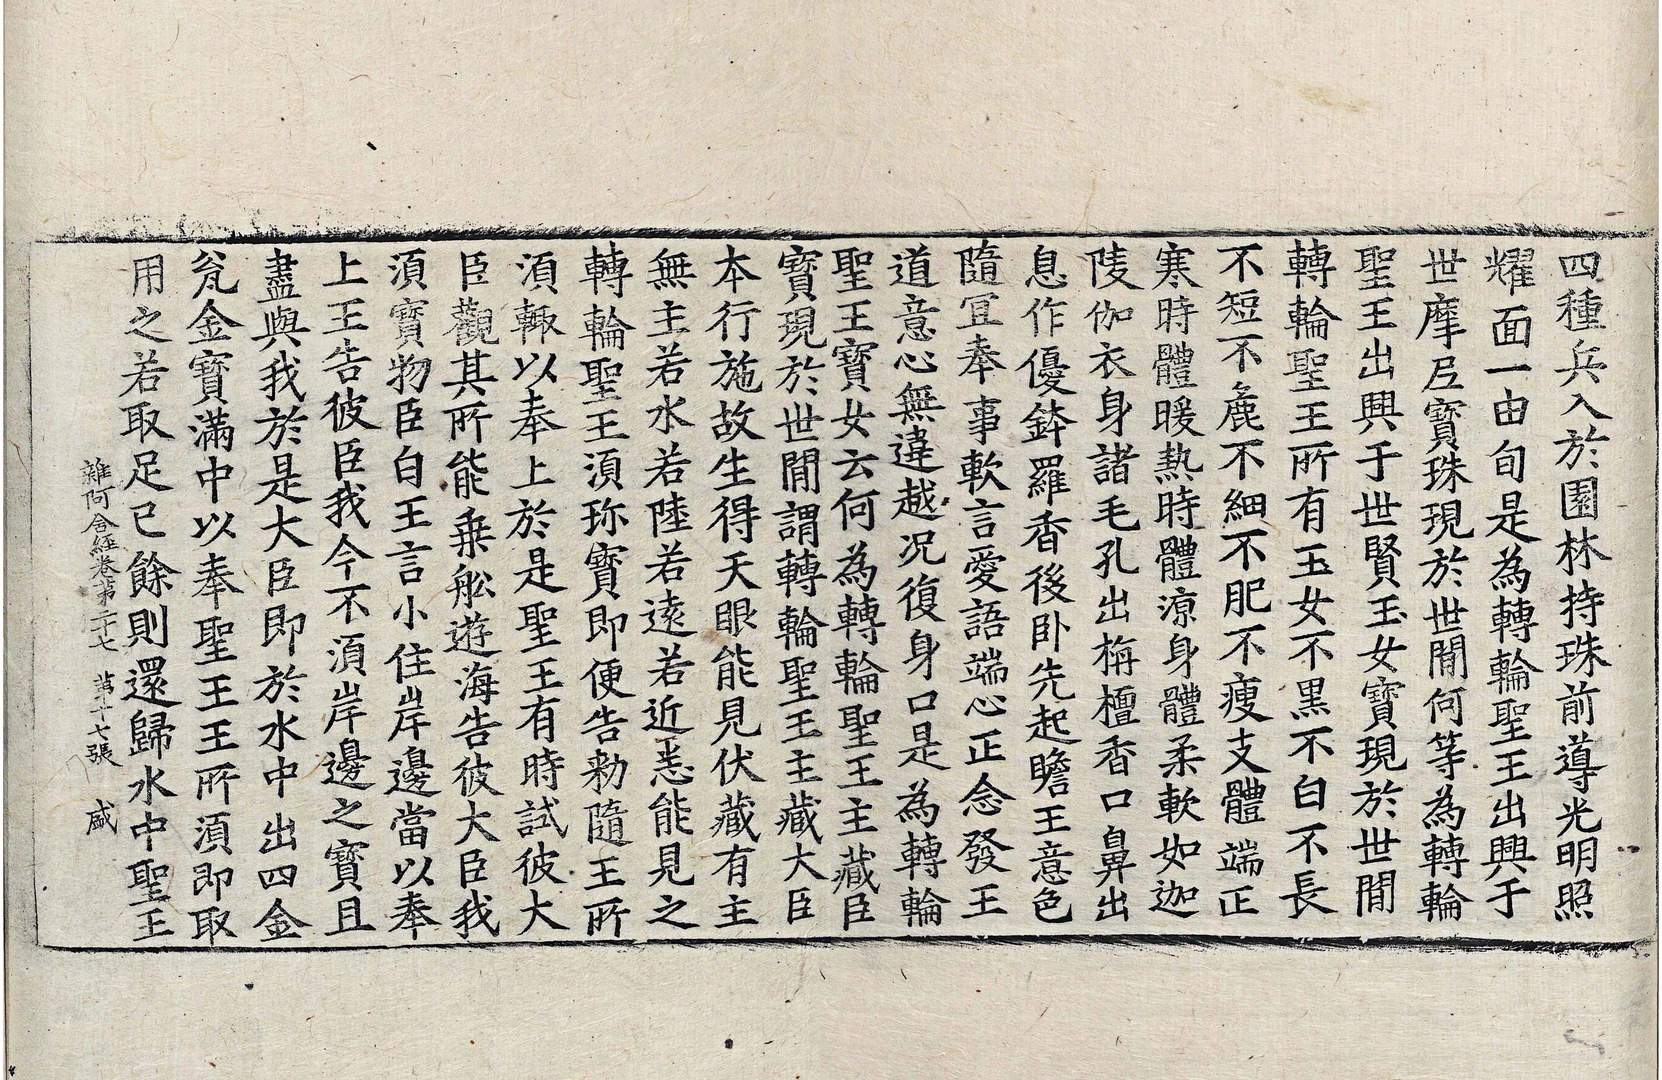 四種兵入於園林持珠前導光明照
耀面一由旬是為轉輪聖王出興于
世摩尼寶珠現於世間何等為轉輪
聖王出興于世賢玉女寶現於世間
轉輪聖王所有玉女不黑不白不長
不短不麁不細不肥不瘦支體端正
寒時體暖熱時體涼身體柔軟如迦
陵伽衣身諸毛孔出栴檀香口鼻出
息作優鉢羅香後卧先起瞻王意色
隨宜奉事軟言愛語端心正念發王
道意心無違越况復身口是為轉輪
聖王寶女云何為轉輪聖王主藏臣
寶現於世間謂轉輪聖王主藏大臣
本行施故生得天眼能見伏藏有主
無主若水若陸若遠若近悉能見之
轉輪聖王須珎寶即便告勑隨王所
須輙以奉上於是聖王有時試彼大
臣觀其所能乗舩遊海告彼大臣我
須寶物臣白王言小住岸邊當以奉
上王告彼臣我今不須岸邊之寶且
盡與我於是大臣即於水中出四金
瓮金寶滿中以奉聖王王所須即取
用之若取足已餘則還歸水中聖王
雜阿含経卷第二十七 第十七張 盛